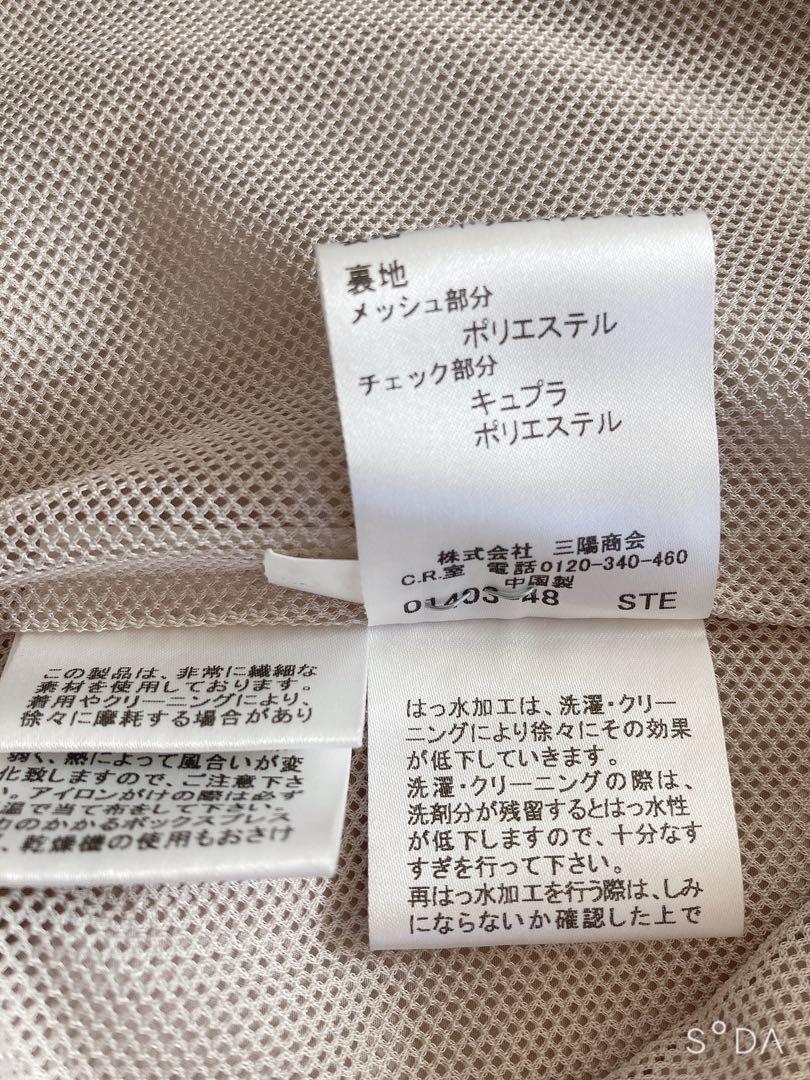 裏地
メッシュ部分
ポリエステル
チェック部分
キュプラ
ポリエステル
株式会社 三陽商会
C.R.室 電話0120-340-460
中国製
48 STE
この製品は、非常に繊細な
素材を使用しております。
着用やクリーニングにより、
徐々に摩耗する場合があり
弱く、熱によって風合いが変
化致しますので、ご注意下さ
い。アイロンがけの際は必ず
温で当て布をして下さい。
力のかかるボックスプレス
、乾燥機の使用もおさけ
はっ水加工は、洗濯・クリー
ニングにより徐々にその効果
が低下していきます。
洗濯・クリーニングの際は、
洗剤分が残留するとはっ水性
が低下しますので、十分なす
すぎを行って下さい。
再はっ水加工を行う際は、しみ
にならないか確認した上で
S°DA